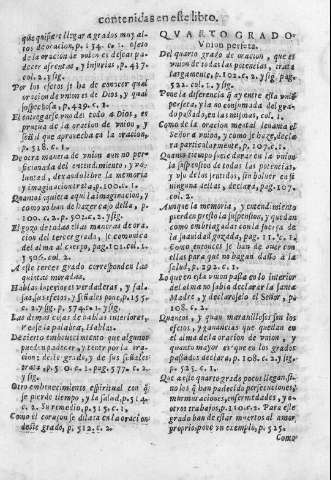 contenidas en este libro.
que quisiere llegar a grados muy al-
tos de oracion, p. 134. c. 1.
de la oracion de vnion es desear pa-
decer afrentas, y injurias, p. 437.
col. 2. y sig.
Por los efetos se ha de conocer qual
oracion de vnion es de Dios, y qual
sospechosa, p. 429. c. 2.
El entregarse vno del todo a Dios, es
pratica de la oracion de vnion, y
señal que aprovecha en la oracion,
p. 518. c. 1.
De otra manera de vnion aun no per-
ficionada del entendimiento, y vo-
luntad, dexandolibre la memoria
y imaginacion trata, p. 100. c. 1.
Quanto inquieta aqui la imaginacion, y
como no han de hazer caso della, p.
100. c. 2. p. 501. c. 2. y sig.
El gozo de todas estas maneras de ora-
cion del tercer grado, se comunica
del alma al cuerpo, pag. 101. col. 1.
y 506. col. 2.
A este tercer grado corresponden las
quintas moradas.
Hablas interiores verdaderas, y fal-
sas, sus efetos, y señales pone, p. 155.
c. 2. y sig. p. 574. c. 1. y sig.
Las demas cosas de hablas interiores,
Vease la palabra, Hablas.
De cierto embebecimiento que algunos
pueden padecer, y tener por la ora-
cion deste grado, y de sus señales
trata
y sig.
Otro embebecimiento espiritual con q̃
se pierde tiempo, y la salud, p. 514.
c. 2. Su remedio, p. 515. c. 1.
Como el coraçon se dilata en la oracion
deste grado, p. 512. c. 2.
QVARTO GRADO
Vnion perfeta.
Del quarto grado de oracion, que es
vnion de todas las potencias, trata
largamente, p. 102. c. 2. y sig. pag.
522. col. 1. y sig.
Pone la diferencia q̃ ay entre esta vniõ
perfeta, y la no consumada del gra-
do passado, en las mismas, col. 1.
Como de la oracion mental levanta el
Señor a vnion, y como se haze, decla-
ra particularmente, p. 107. c. 1.
Quanto tiempo suele durar de la vnion
la suspension de todas las potencias,
y vso de los sentidos, sin bolver en si
ninguna dellas, declara, pag. 107.
col. 2.
Aunque la memoria, y entendimiento
pierden presto la suspension, y quedan
como embriagadas con la fuerça de
la suavidad gozada, pag. 111. c. 1.
Como entonces se han de aver con
ellas para que no hagan daño a la
salud, p. 292. c. 1.
Lo que en esta vnion passa en lo interior
del alma no sabia declarar la santa
Madre, y declaroselo el Señor, p.
108. c. 2.
Quantos, y quan maravillosos son los
efetos, y ganancias que quedan en
el alma de la oracion de vnion, y
quanto mayor es que en los grados
passados declara, p. 108. c. 2. y sig.
p. 525. c. 1.
Que a este quarto grado pocos llegan, si
no los q̃ han padecido persecuciones,
murmuraciones, enfermedades, y
otros trabajos, p. 210. c. 2. Para este
grado han de estar muertos al amor
proprio, pone vn exemplo, p. 525.
Como